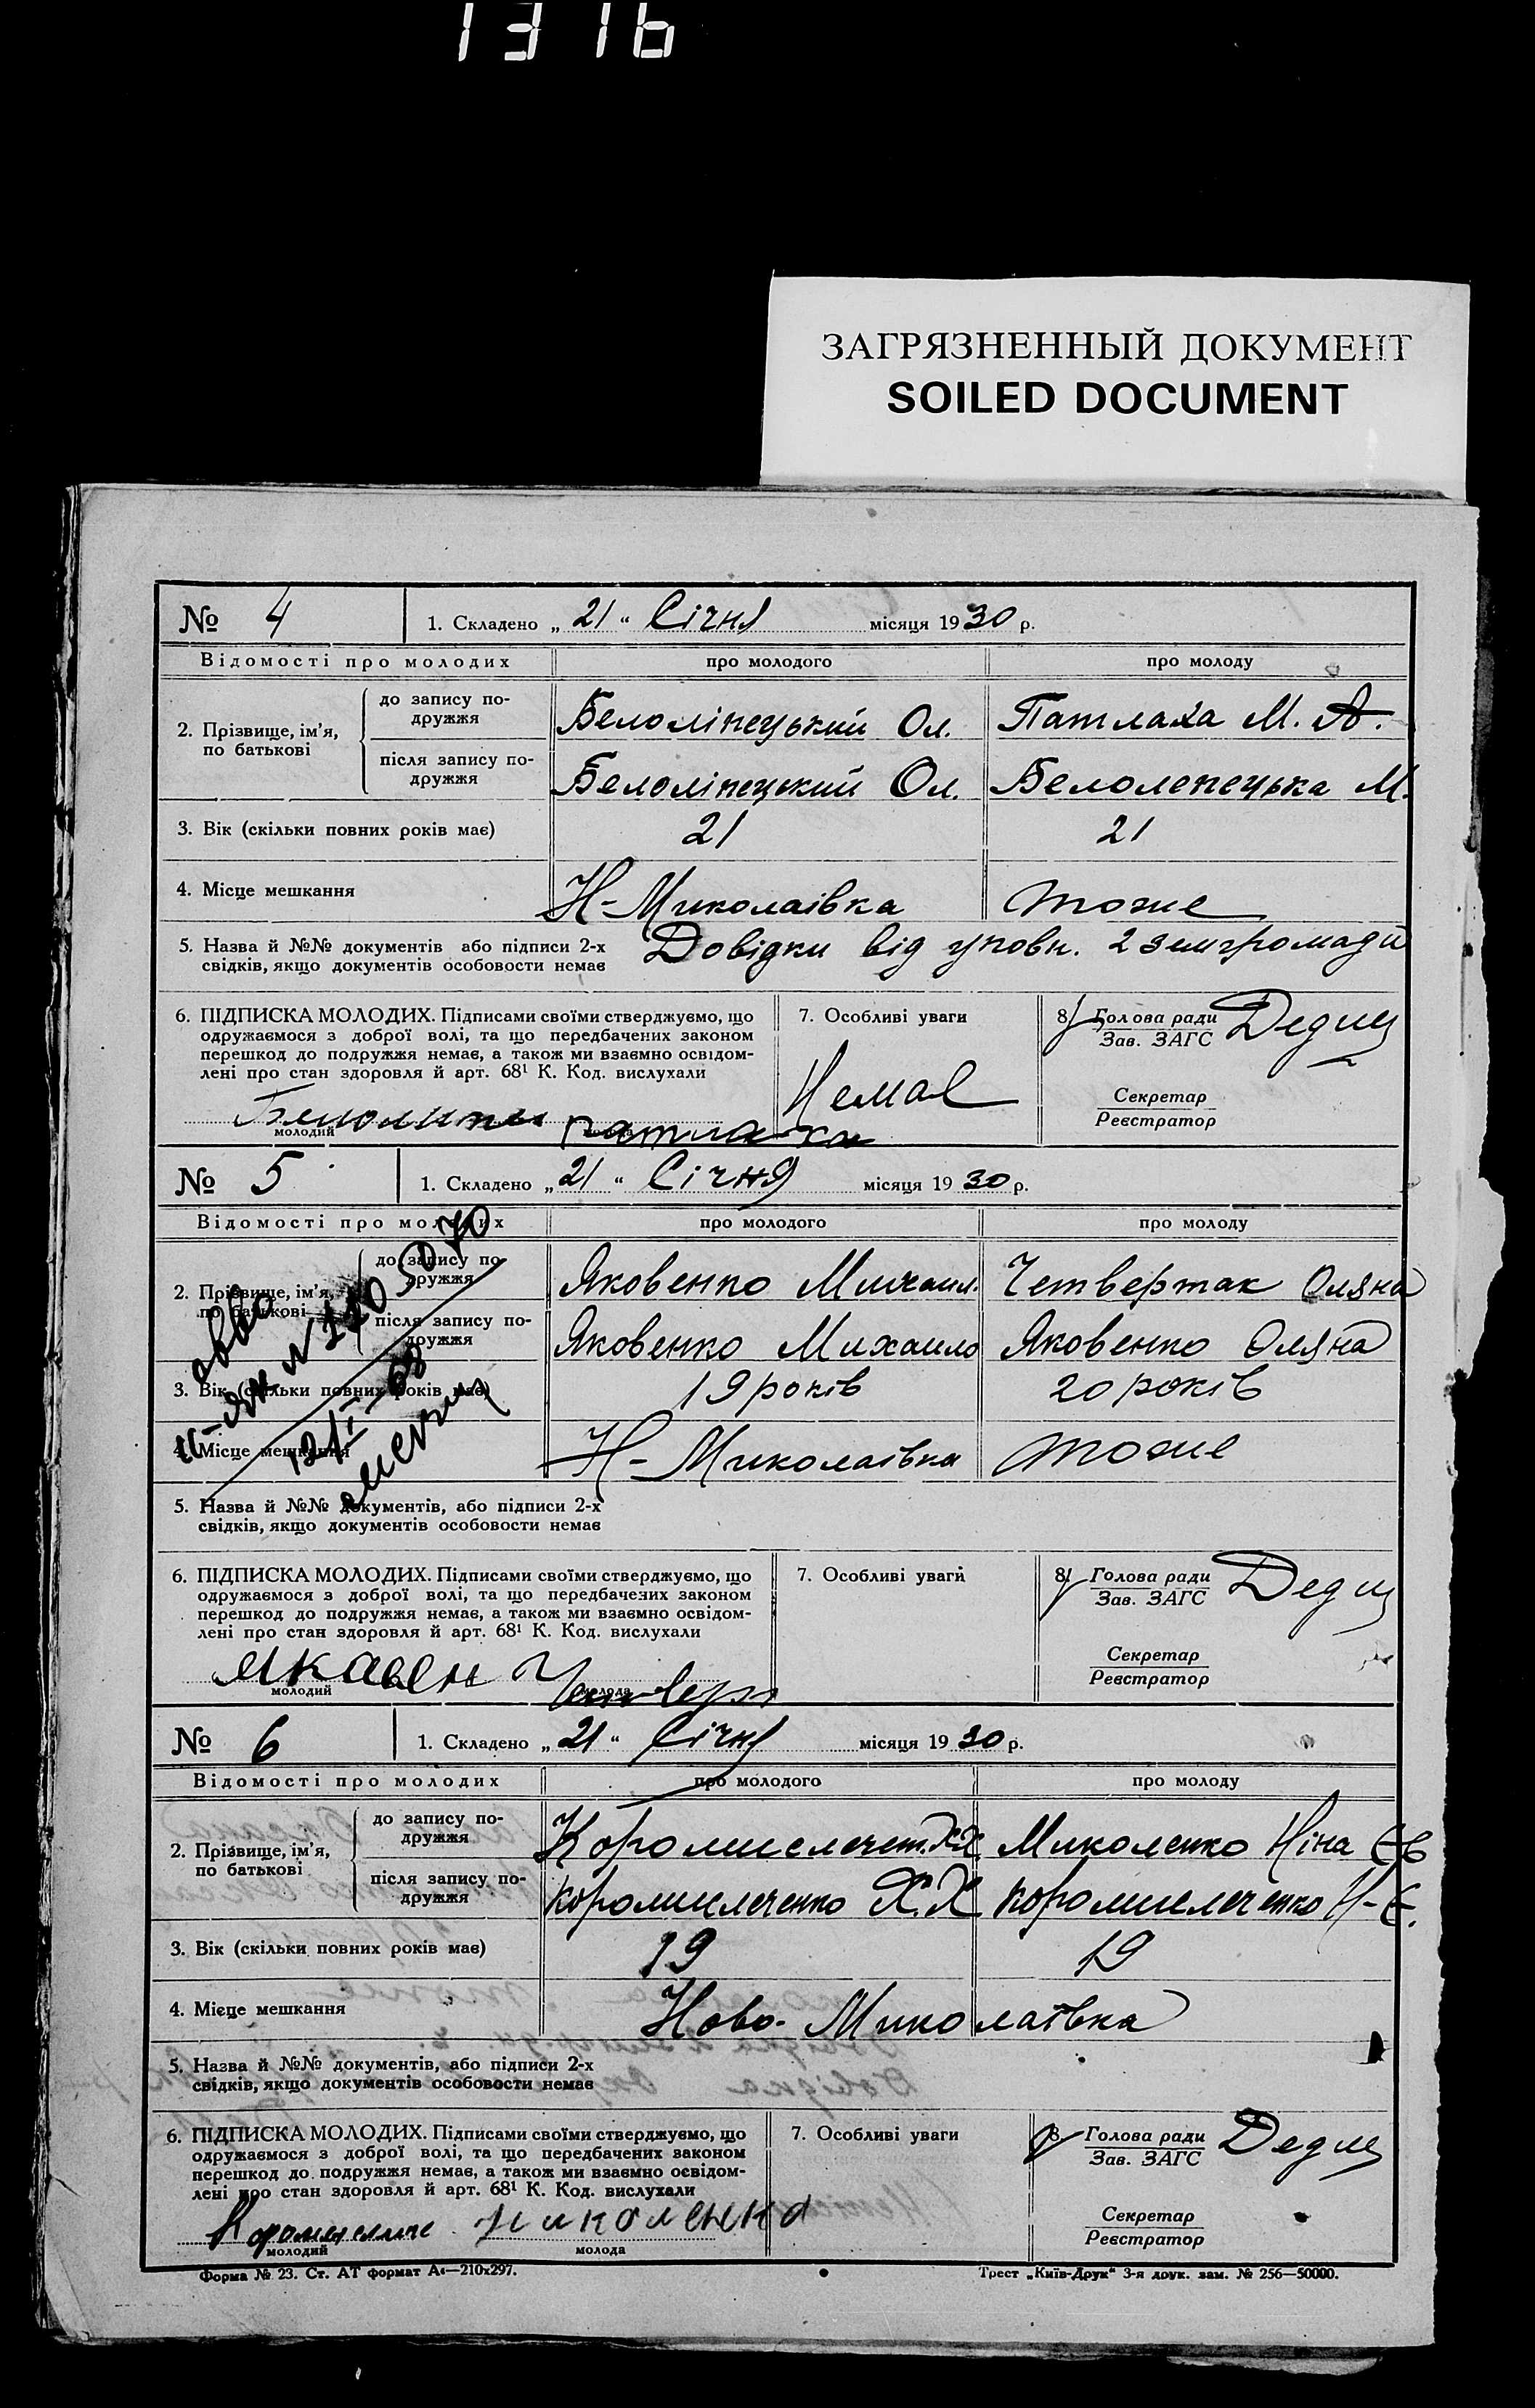 1316
ЗАГРЯЗНЕННЫЙ ДОКУМЕНТ
SOILED DOCUMENT
№ 4
1. Складено „ 21 “ Січня місяця 1930 р.
Відомості про молодих
про молодого
про молоду
2. Прізвище, ім’я,
по батькові
до запису по-
дружжя
Белоліпецький Ол.
Патлаха М. А.
після запису по-
дружжя
Белоліпецький Ол.
Белолепецька М.
3. Вік (скільки повних років має)
21
21
4. Місце мешкання
Н-Миколаівка
тоже
5. Назва й №№ документів або підписи 2-х
свідків, якщо документів особовости немає
Довідки від уповн. 2 земгромади
6. ПІДПИСКА МОЛОДИХ. Підписами своїми стверджуємо, що
одружаємося з доброї волі, та що передбачених законом
перешкод до подружжя немає, а також ми взаємно освідом-
лені про стан здоровля й арт. 68¹ К. Код. вислухали
молодий
патлаха
7. Особливі уваги
Немає
8. Голова ради
Зав. ЗАГС
Секретар
Реєстратор
№ 5
1. Складено „ 21 “ Січня місяця 1930 р.
Відомості про молодих
про молодого
про молоду
2. Прізвище, ім’я,
по батькові
до запису по-
дружжя
Яковенко Михаил.
Четвертак Оляна
після запису по-
дружжя
Яковенко Михаило
Яковенко Оляна
3. Вік (скільки повних років має)
19 років
20 років
4. Місце мешкання
Н-Миколаівка
тоже
5. Назва й №№ документів, або підписи 2-х
свідків, якщо документів особовости немає
6. ПІДПИСКА МОЛОДИХ. Підписами своїми стверджуємо, що
одружаємося з доброї волі, та що передбачених законом
перешкод до подружжя немає, а також ми взаємно освідом-
лені про стан здоровля й арт. 68¹ К. Код. вислухали
молодий
молода
7. Особливі уваги
8. Голова ради
Зав. ЗАГС
Секретар
Реєстратор
№ 6
1. Складено „ 21 “ Січня місяця 1930 р.
Відомості про молодих
про молодого
про молоду
2. Прізвище, ім’я,
по батькові
до запису по-
дружжя
Коромислечен. Х.Х
Миколенко Ніна Єв
після запису по-
дружжя
коромислеченко Х.Х
коромислеченко Н-Є.
3. Вік (скільки повних років має)
19
19
4. Місце мешкання
Ново-Миколаївка
5. Назва й №№ документів, або підписи 2-х
свідків, якщо документів особовости немає
6. ПІДПИСКА МОЛОДИХ. Підписами своїми стверджуємо, що
одружаємося з доброї волі, та що передбачених законом
перешкод до подружжя немає, а також ми взаємно освідом-
лені про стан здоровля й арт. 68¹ К. Код. вислухали
молодий
молода
7. Особливі уваги
8. Голова ради
Зав. ЗАГС
Секретар
Реєстратор
Форма № 23. Ст. АТ формат А4—210x297.
Трест „Київ-Друк“ 3-я друк. зам. № 256—50000.